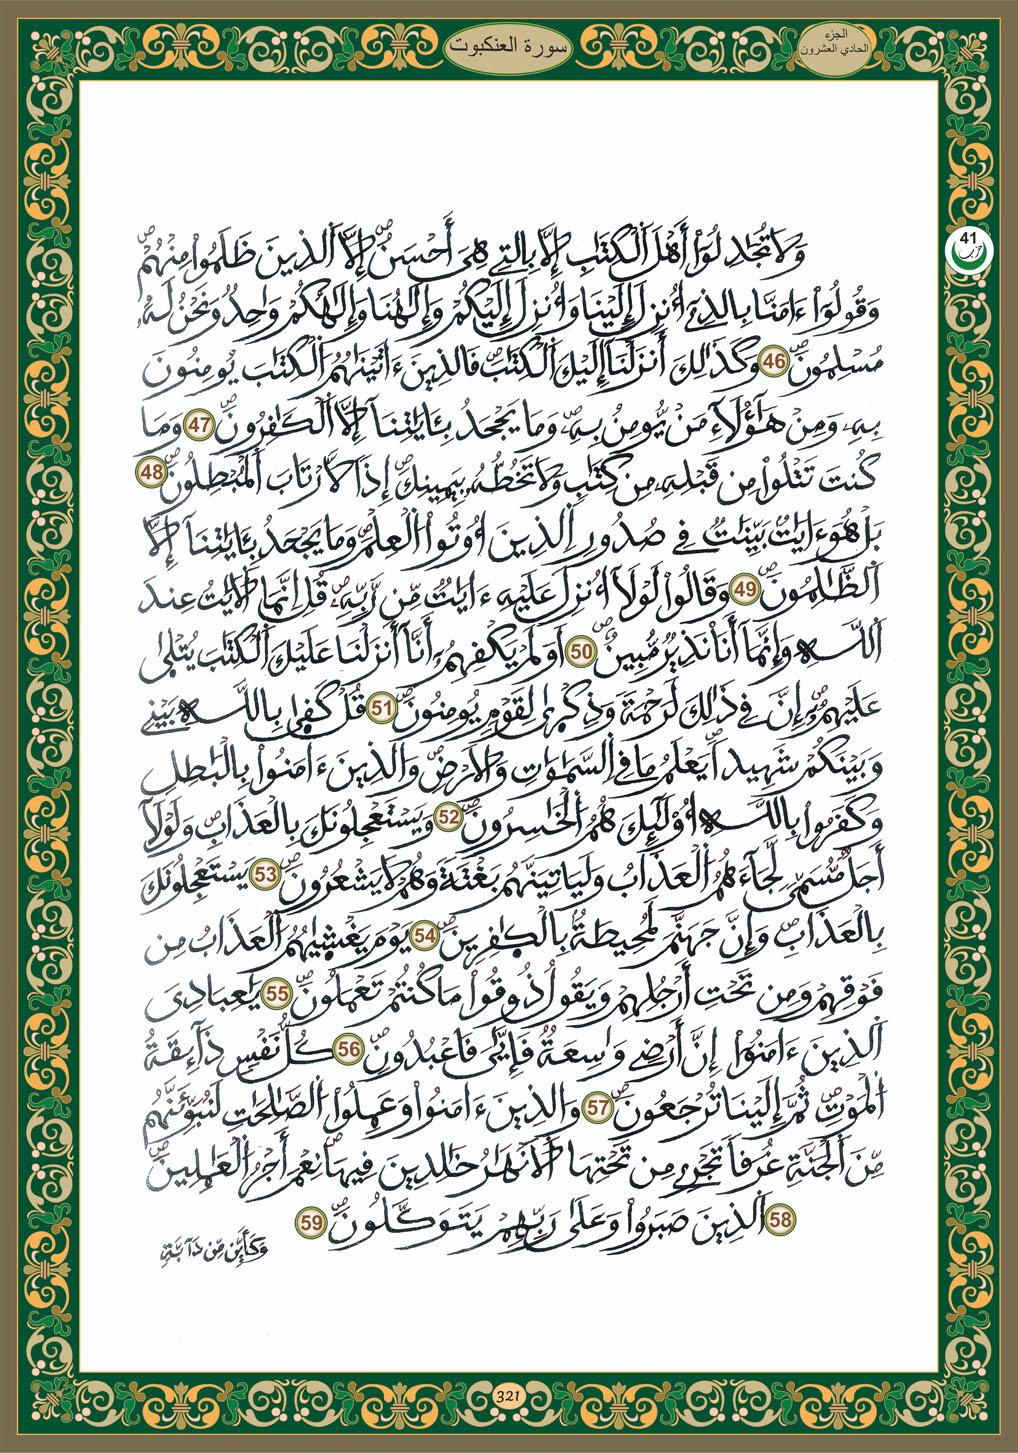 سورة العنكبوت
الجزء
الحادي العشرون
41
حزب
وَلَا تُجَٰدِلُوٓاْ أَهْلَ اَ۬لْكِتَٰبِ إِلَّا بِالتِے هِيَ أَحْسَنُ إِلَّا اَ۬لذِينَ ظَلَمُواْ مِنْهُمْ
وَقُولُوٓاْ ءَامَنَّا بِالذِےٓ أُنزِلَ إِلَيْنَا وَأُنزِلَ إِلَيْكُمْ وَإِلَٰهُنَا وَإِلَٰهُكُمْ وَٰحِدٞ وَنَحْنُ لَهُۥ
مُسْلِمُونَ 46 وَكَذَٰلِكَ أَنزَلْنَآ إِلَيْكَ اَ۬لْكِتَٰبَ فَالذِينَ ءَاتَيْنَٰهُمُ اُ۬لْكِتَٰبَ يُومِنُونَ
بِهِۦ وَمِنْ هَٰٓؤُلَآءِ مَنْ يُّومِنُ بِهِۦ وَمَا يَجْحَدُ بِـَٔايَٰتِنَآ إِلَّا اَ۬لْكَٰفِرُونَ 47 وَمَا
كُنتَ تَتْلُواْ مِن قَبْلِهِۦ مِن كِتَٰبٖ وَلَا تَخُطُّهُۥ بِيَمِينِكَ إِذاٗ لَّارْتَابَ اَ۬لْمُبْطِلُونَ 48
بَلْ هُوَ ءَايَٰتُۢ بَيِّنَٰتٞ فِے صُدُورِ اِ۬لذِينَ أُوتُواْ اُ۬لْعِلْمَ وَمَا يَجْحَدُ بِـَٔايَٰتِنَآ إِلَّا
اَ۬لظَّٰلِمُونَ 49 وَقَالُواْ لَوْلَآ أُنزِلَ عَلَيْهِ ءَايَٰتٞ مِّن رَّبِّهِۦ قُلِ اِنَّمَا اَ۬لَايَٰتُ عِندَ
اَ۬للَّهِ وَإِنَّمَآ أَنَا نَذِيرٞ مُّبِينٌ 50 اَوَلَمْ يَكْفِهِمُۥٓ أَنَّآ أَنزَلْنَا عَلَيْكَ اَ۬لْكِتَٰبَ يُتْلَىٰ
عَلَيْهِمُۥٓ إِنَّ فِے ذَٰلِكَ لَرَحْمَةٗ وَذِكْرَىٰ لِقَوْمٖ يُومِنُونَ 51 قُلْ كَفَىٰ بِاللَّهِ بَيْنِے
وَبَيْنَكُمْ شَهِيداٗ يَعْلَمُ مَا فِے اِ۬لسَّمَٰوَٰتِ وَالَارْضِ وَالذِينَ ءَامَنُواْ بِالْبَٰطِلِ
وَكَفَرُواْ بِاللَّهِ أُوْلَٰٓئِكَ هُمُ اُ۬لْخَٰسِرُونَ 52 وَيَسْتَعْجِلُونَكَ بِالْعَذَابِ وَلَوْلَآ
أَجَلٞ مُّسَمّيٗ لَّجَآءَهُمُ اُ۬لْعَذَابُ وَلَيَاتِيَنَّهُم بَغْتَةٗ وَهُمْ لَا يَشْعُرُونَ 53 يَسْتَعْجِلُونَكَ
بِالْعَذَابِ وَإِنَّ جَهَنَّمَ لَمُحِيطَةُۢ بِالْكٰ۪فِرِينَ 54 يَوْمَ يَغْشَىٰهُمُ اُ۬لْعَذَابُ مِن
فَوْقِهِمْ وَمِن تَحْتِ أَرْجُلِهِمْ وَيَقُولُ ذُوقُواْ مَا كُنتُمْ تَعْمَلُونَ 55 يَٰعِبَادِيَ
اَ۬لذِينَ ءَامَنُوٓاْ إِنَّ أَرْضِے وَٰسِعَةٞ فَإِيَّٰيَ فَاعْبُدُونِ 56 كُلُّ نَفْسٖ ذَآئِقَةُ
اُ۬لْمَوْتِ ثُمَّ إِلَيْنَا تُرْجَعُونَ 57 وَالذِينَ ءَامَنُواْ وَعَمِلُواْ اُ۬لصَّٰلِحَٰتِ لَنُبَوِّئَنَّهُم
مِّنَ اَ۬لْجَنَّةِ غُرَفاٗ تَجْرِے مِن تَحْتِهَا اَ۬لَانْهَٰرُ خَٰلِدِينَ فِيهَا نِعْمَ أَجْرُ اُ۬لْعَٰمِلِينَ
58 اَ۬لذِينَ صَبَرُواْ وَعَلَىٰ رَبِّهِمْ يَتَوَكَّلُونَ 59
وَكَأَيِّن مِّن دَآبَّةٖ
321